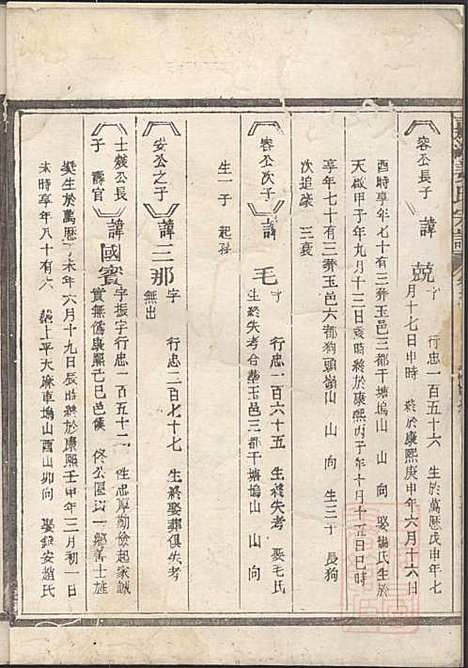 容公長子
諱兢
字 行忠一百五十六 生於萬歷戊申年七
月十七日申時 終於康熙庚申年六月十六日
酉時享年七十有三葬玉邑三都干塘塢山 山 向 娶 氏生於
天啟甲子年九月十三日亥時終於康熙丙子年十月十五日巳時
享年七十有三葬玉邑六都狗頭嶺山 山 向 生三子 長狗
次追 三
容公次子
諱毛
字 行忠一百六十五 生終失考 娶毛氏
生終失考合葬玉邑三都干塘塢山 山 向
生一子 起
安公之子
諱三那
字 行忠二百七十七 生終娶葬俱失考
無出
士 公長
子 壽官
諱國賓
字振宇行忠一百五十二 性忠厚勤儉起家誠
實無偽康熙己巳邑侯 佟公 以一鄉善士旌
獎生於萬歷 未年六月十九日辰時終於康熙壬申年三月初一日
未時享年八十有六 上平大麻車塢山酉山卯向 娶 安趙氏